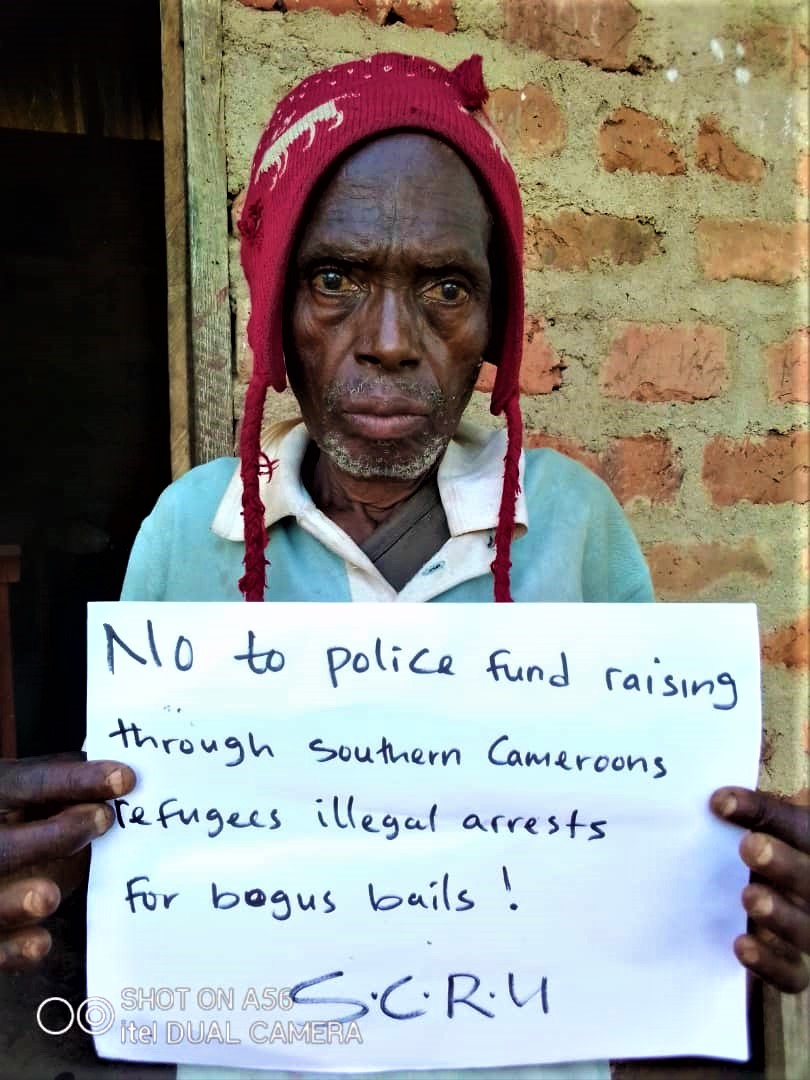 No to police fund raising
through southern Cameroons
refugees illegal arrests
for bogus bails !
S.C.R.U
SHOT ON A56
itel DUAL CAMERA